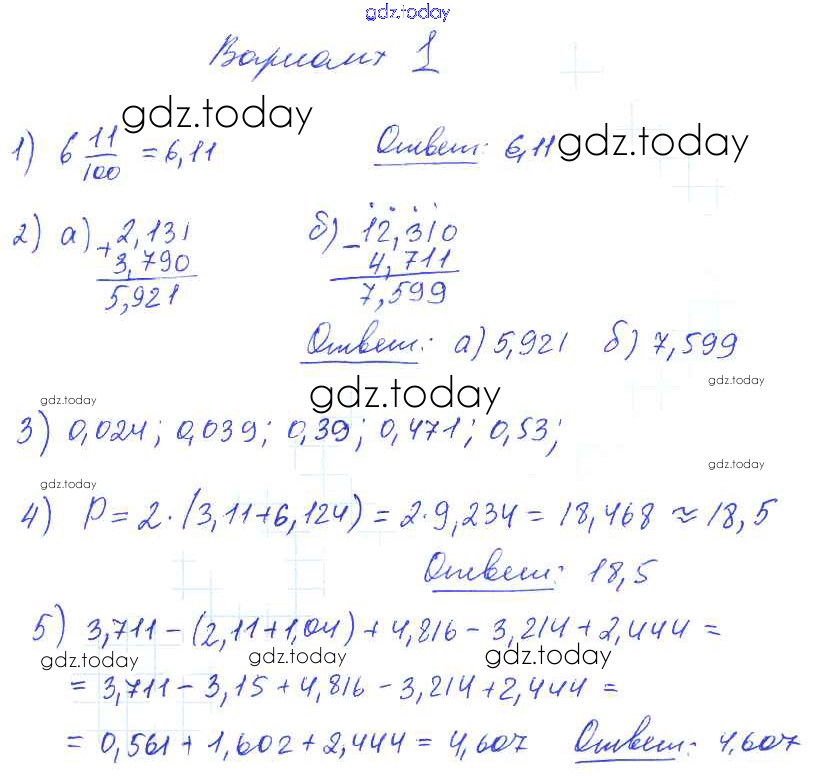 gdz.today
Вариант 1
gdz.today
1) 6 11/100 = 6,11 Ответ: 6,11 gdz.today
2) а) + 2,131 б) - 12,310
3,790 4,711
5,921 7,599
Ответ: а) 5,921 б) 7,599
gdz.today
gdz.today gdz.today
3) 0,024; 0,039; 0,39; 0,471; 0,53;
gdz.today
gdz.today
4) P = 2·(3,11+6,124) = 2·9,234 = 18,468 ≈ 18,5
Ответ: 18,5
5) 3,711 - (2,11+1,04) + 4,816 - 3,214 + 2,444 =
gdz.today gdz.today gdz.today
= 3,711 - 3,15 + 4,816 - 3,214 + 2,444 =
= 0,561 + 1,602 + 2,444 = 4,607 Ответ: 4,607